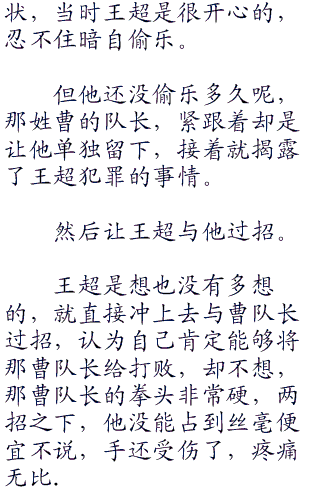 状，当时王超是很开心的，
忍不住暗自偷乐。
但他还没偷乐多久呢，
那姓曹的队长，紧跟着却是
让他单独留下，接着就揭露
了王超犯罪的事情。
然后让王超与他过招。
王超是想也没有多想
的，就直接冲上去与曹队长
过招，认为自己肯定能够将
那曹队长给打败，却不想，
那曹队长的拳头非常硬，两
招之下，他没能占到丝毫便
宜不说，手还受伤了，疼痛
无比.